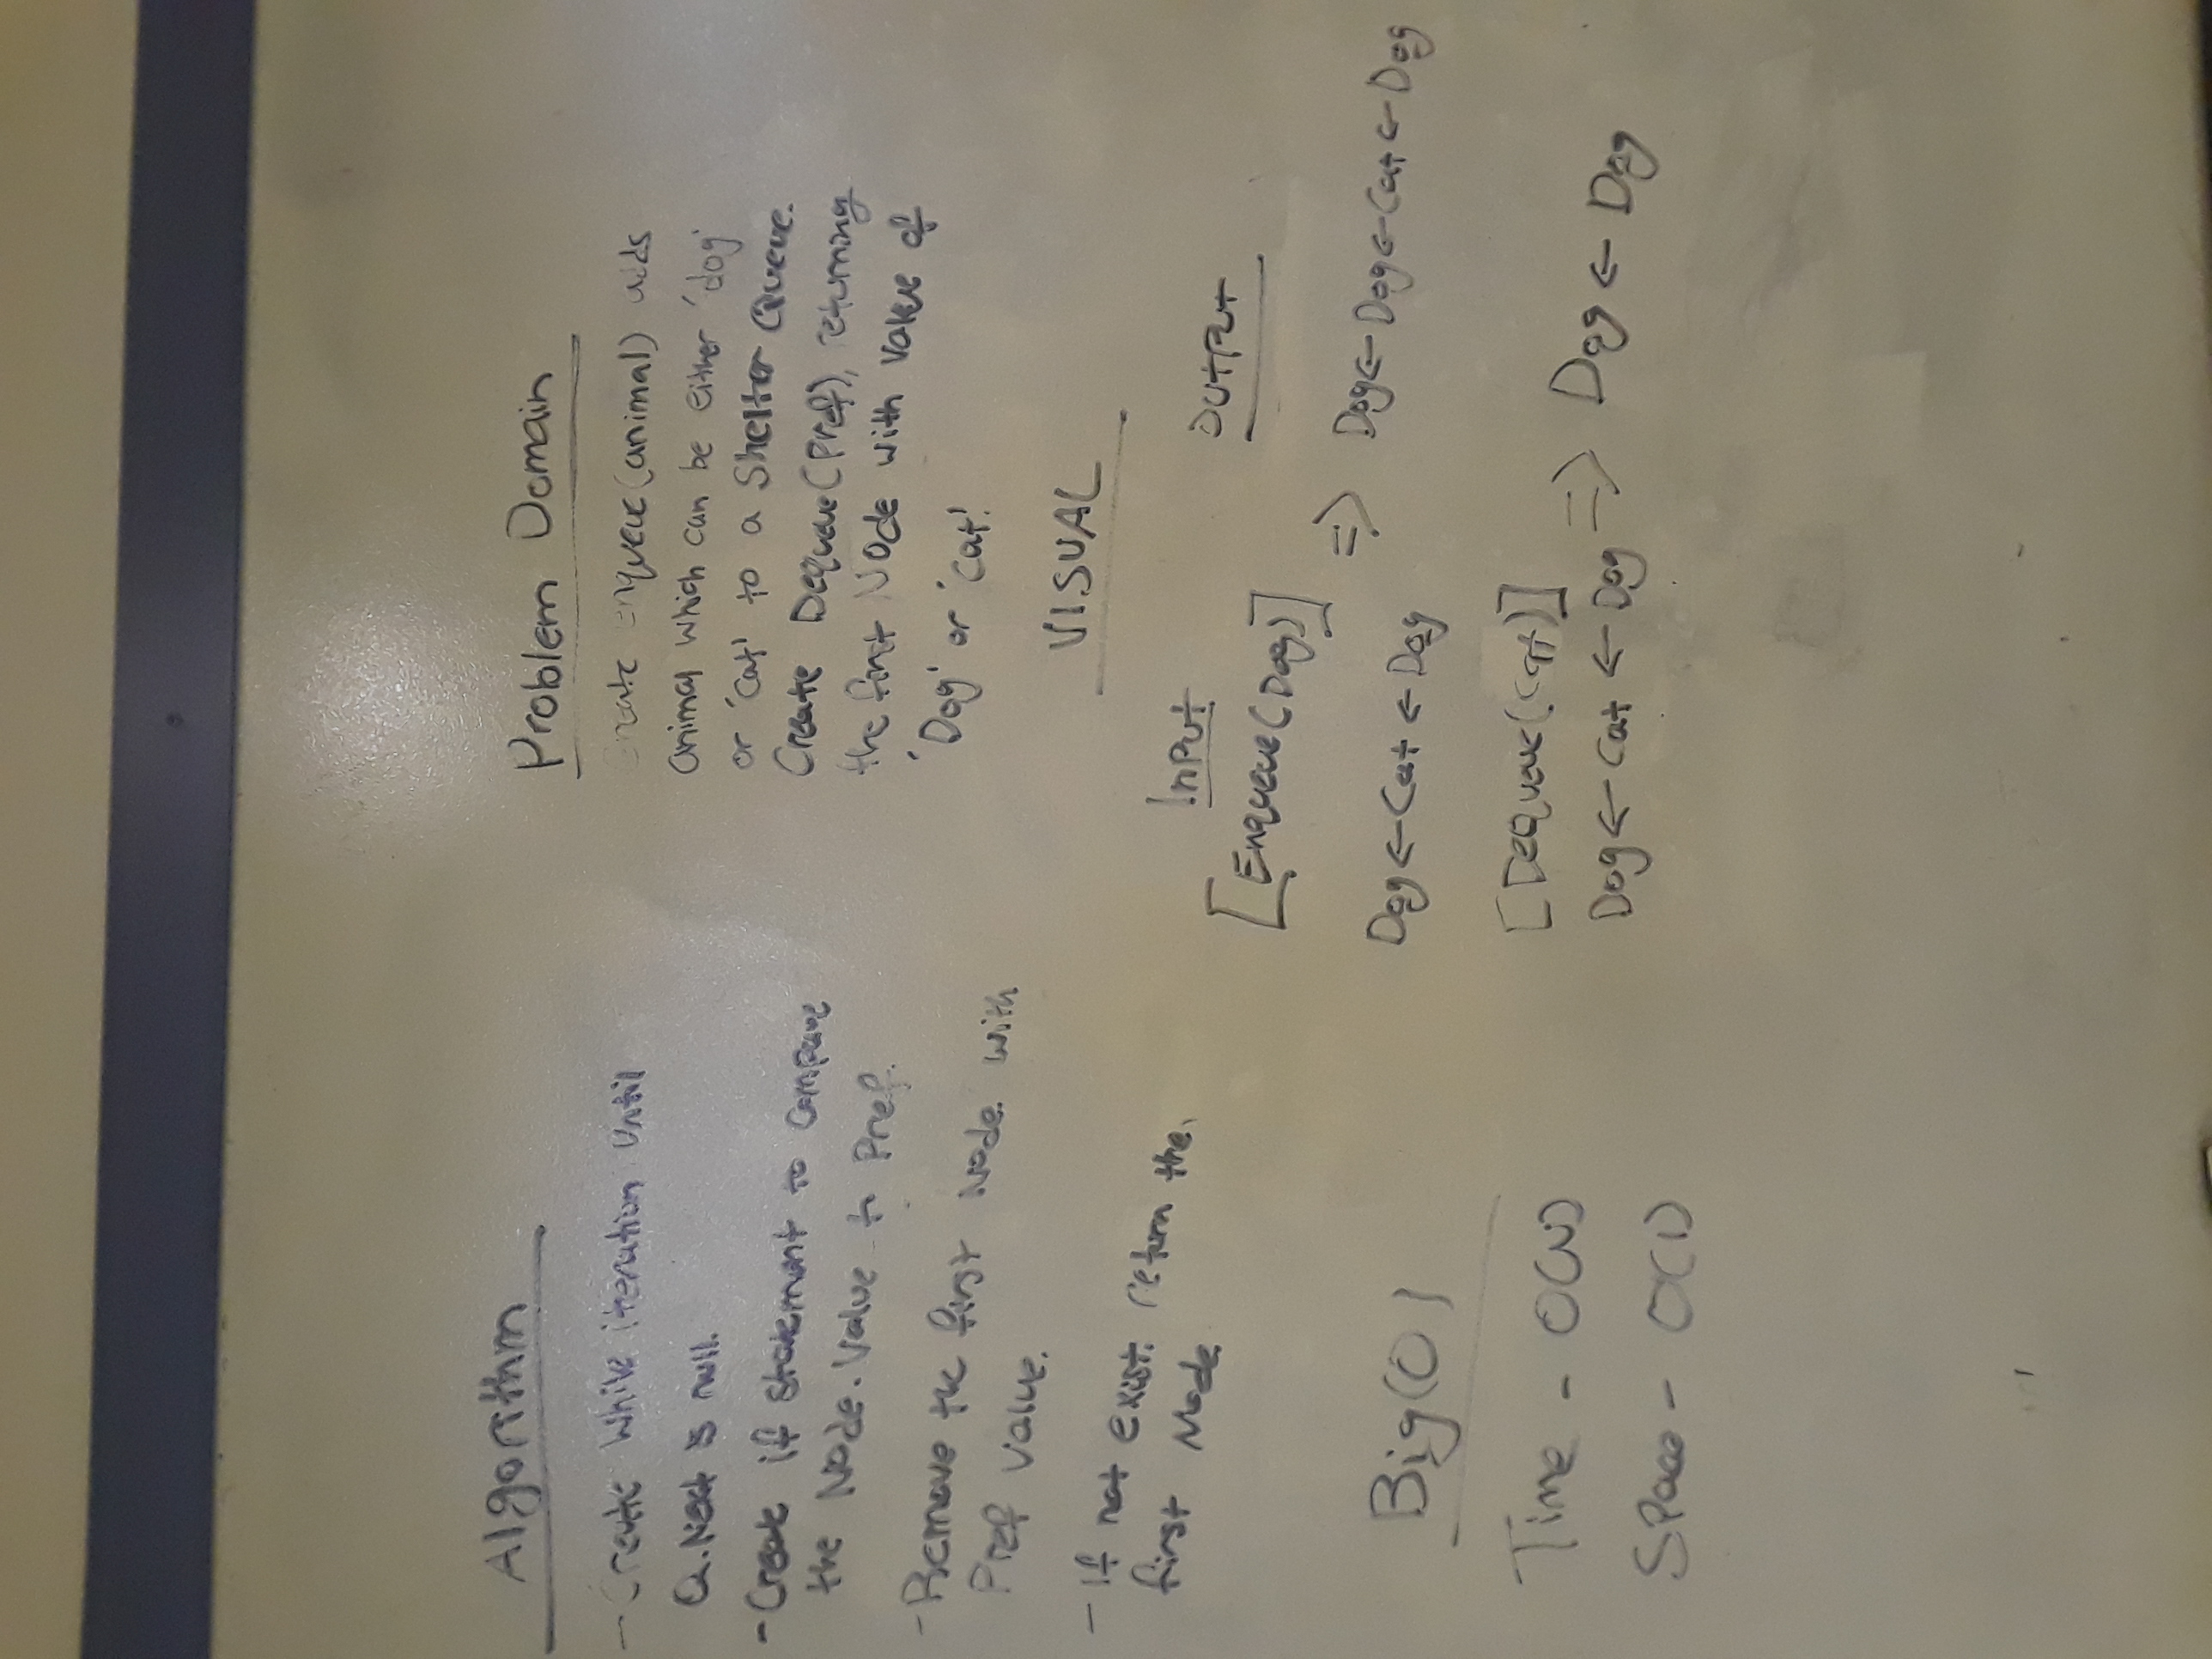 Algorithm
- Create While iteration until
Q.Next is null.
- Create if statement to compare
the Node.Value to Pref.
- Remove the first Node with
Pref Value.
- If not exist. return the
first Node
Big(O)
Time - O(N)
Space - O(1)
Problem Domain
Create enqueue(animal) adds
animal which can be either 'dog'
or 'cat' to a Shelter Queue.
Create Dequeue(Pref), returning
the first Node with value of
'Dog' or 'Cat'.
VISUAL
Input
Output
[Enqueue(Dog)]
=>
Dog ← Cat ← Dog
Dog ← Dog ← Cat ← Dog
[Dequeue(Cat)]
Dog ← Cat ← Dog => Dog ← Dog